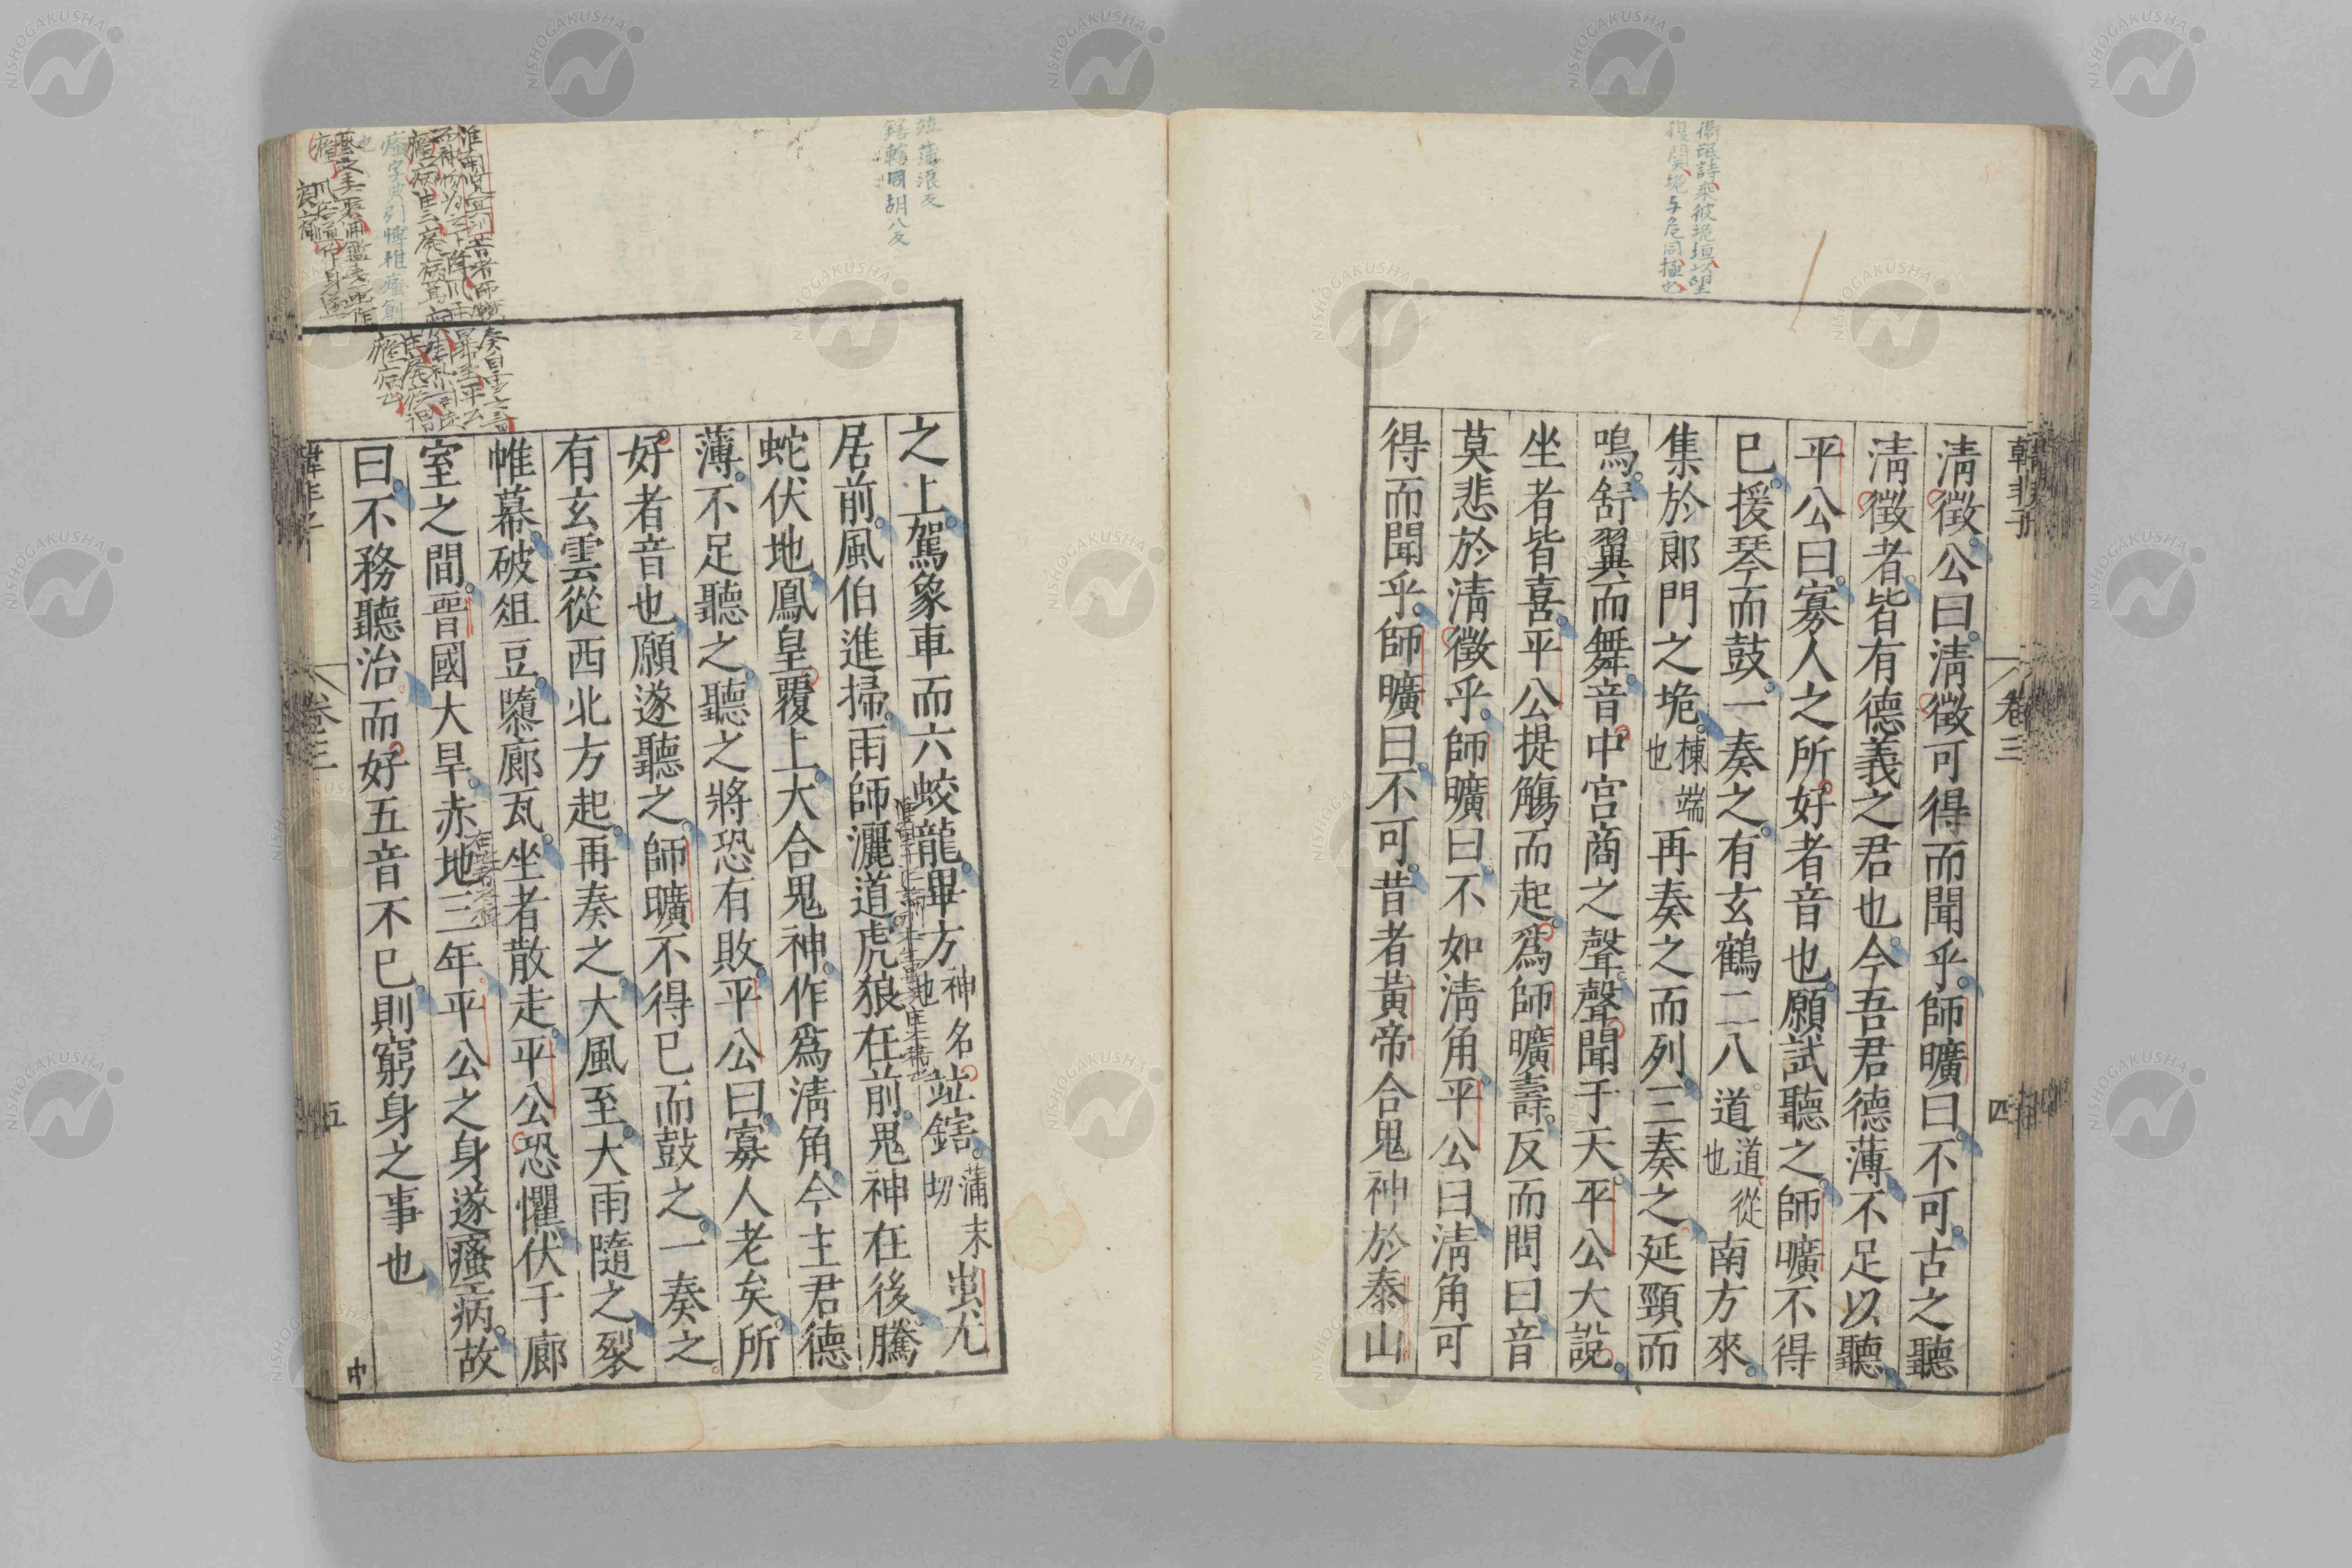 韓非子
卷三
四
清徵公曰清徵可得而聞乎師曠曰不可古之聽
清徵者皆有德義之君也今吾君德薄不足以聽
平公曰寡人之所好者音也願試聽之師曠不得
已援琴而鼓一奏之有玄鶴二八道道從也南方來
集於郞門之垝棟端也再奏之而列三奏之延頸而
鳴舒翼而舞音中宮商之聲聲聞于天平公大說
坐者皆喜平公提觴而起爲師曠壽反而問曰音
莫悲於清徵乎師曠曰不如清角平公曰清角可
得而聞乎師曠曰不可昔者黃帝合鬼神於泰山
之上駕象車而六蛟龍畢方神名也竝鎋蒲末切蚩尤
居前風伯進掃雨師灑道虎狼在前鬼神在後騰
蛇伏地鳳皇覆上大合鬼神作爲清角今主君德
薄不足聽之聽之將恐有敗平公曰寡人老矣所
好者音也願遂聽之師曠不得已而鼓之一奏之
有玄雲從西北方起再奏之大風至大雨隨之裂
帷幕破俎豆隳廊瓦坐者散走平公恐懼伏于廊
室之間晉國大旱赤地三年平公之身遂瘙病故
曰不務聽治而好五音不已則窮身之事也
韓非子
卷三
五
中
衞氓詩乘彼垝垣以望
復關垝与危同極也
竝蒲浪反
鎋轄同胡八反
瘙字典引博雅瘙創
也
NISHOGAKUSHA